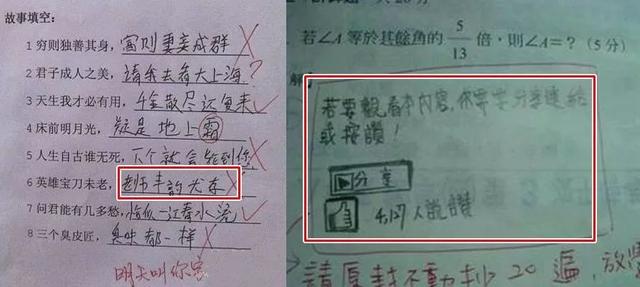 故事填空：
1 穷则独善其身，富则妻妾成群
2 君子成人之美，请余去看大上海
3 天生我才必有用，千金散尽还复来
4 床前明月光，疑是地上霜
5 人生自古谁无死，下个就会轮到你
6 英雄宝刀未老，老师丰韵犹存
7 问君能有几多愁，恰似一江春水流
8 三个臭皮匠，臭味都一样
明天叫你
若∠A 等於其餘角的 5/13 倍，则∠A=？（5分）
若要觀看本內容，你需要分享連結
或按讚！
分享
4,127人說讚
請
20遍，放